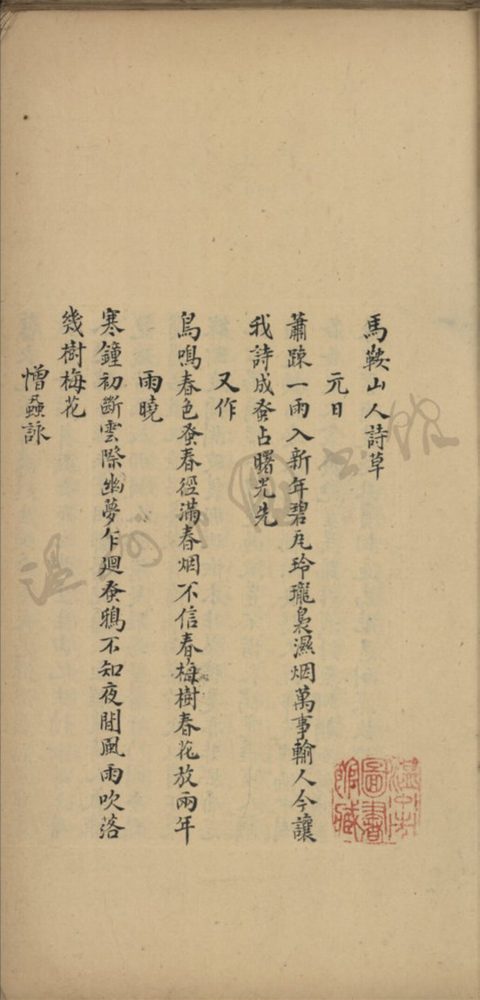 馬鞍山人詩草
元日
蕭踈一雨入新年碧瓦玲瓏裊濕烟萬事輸人今讓
我詩成發占曙光先
又作
鳥鳴春色發春徑滿春烟不信春梅樹春花放兩年
雨曉
寒鐘初斷雲際幽夢乍廻發鴉不知夜間風雨吹落
幾樹梅花
憎蝨詠
温州市圖書館
温州市圖書館藏